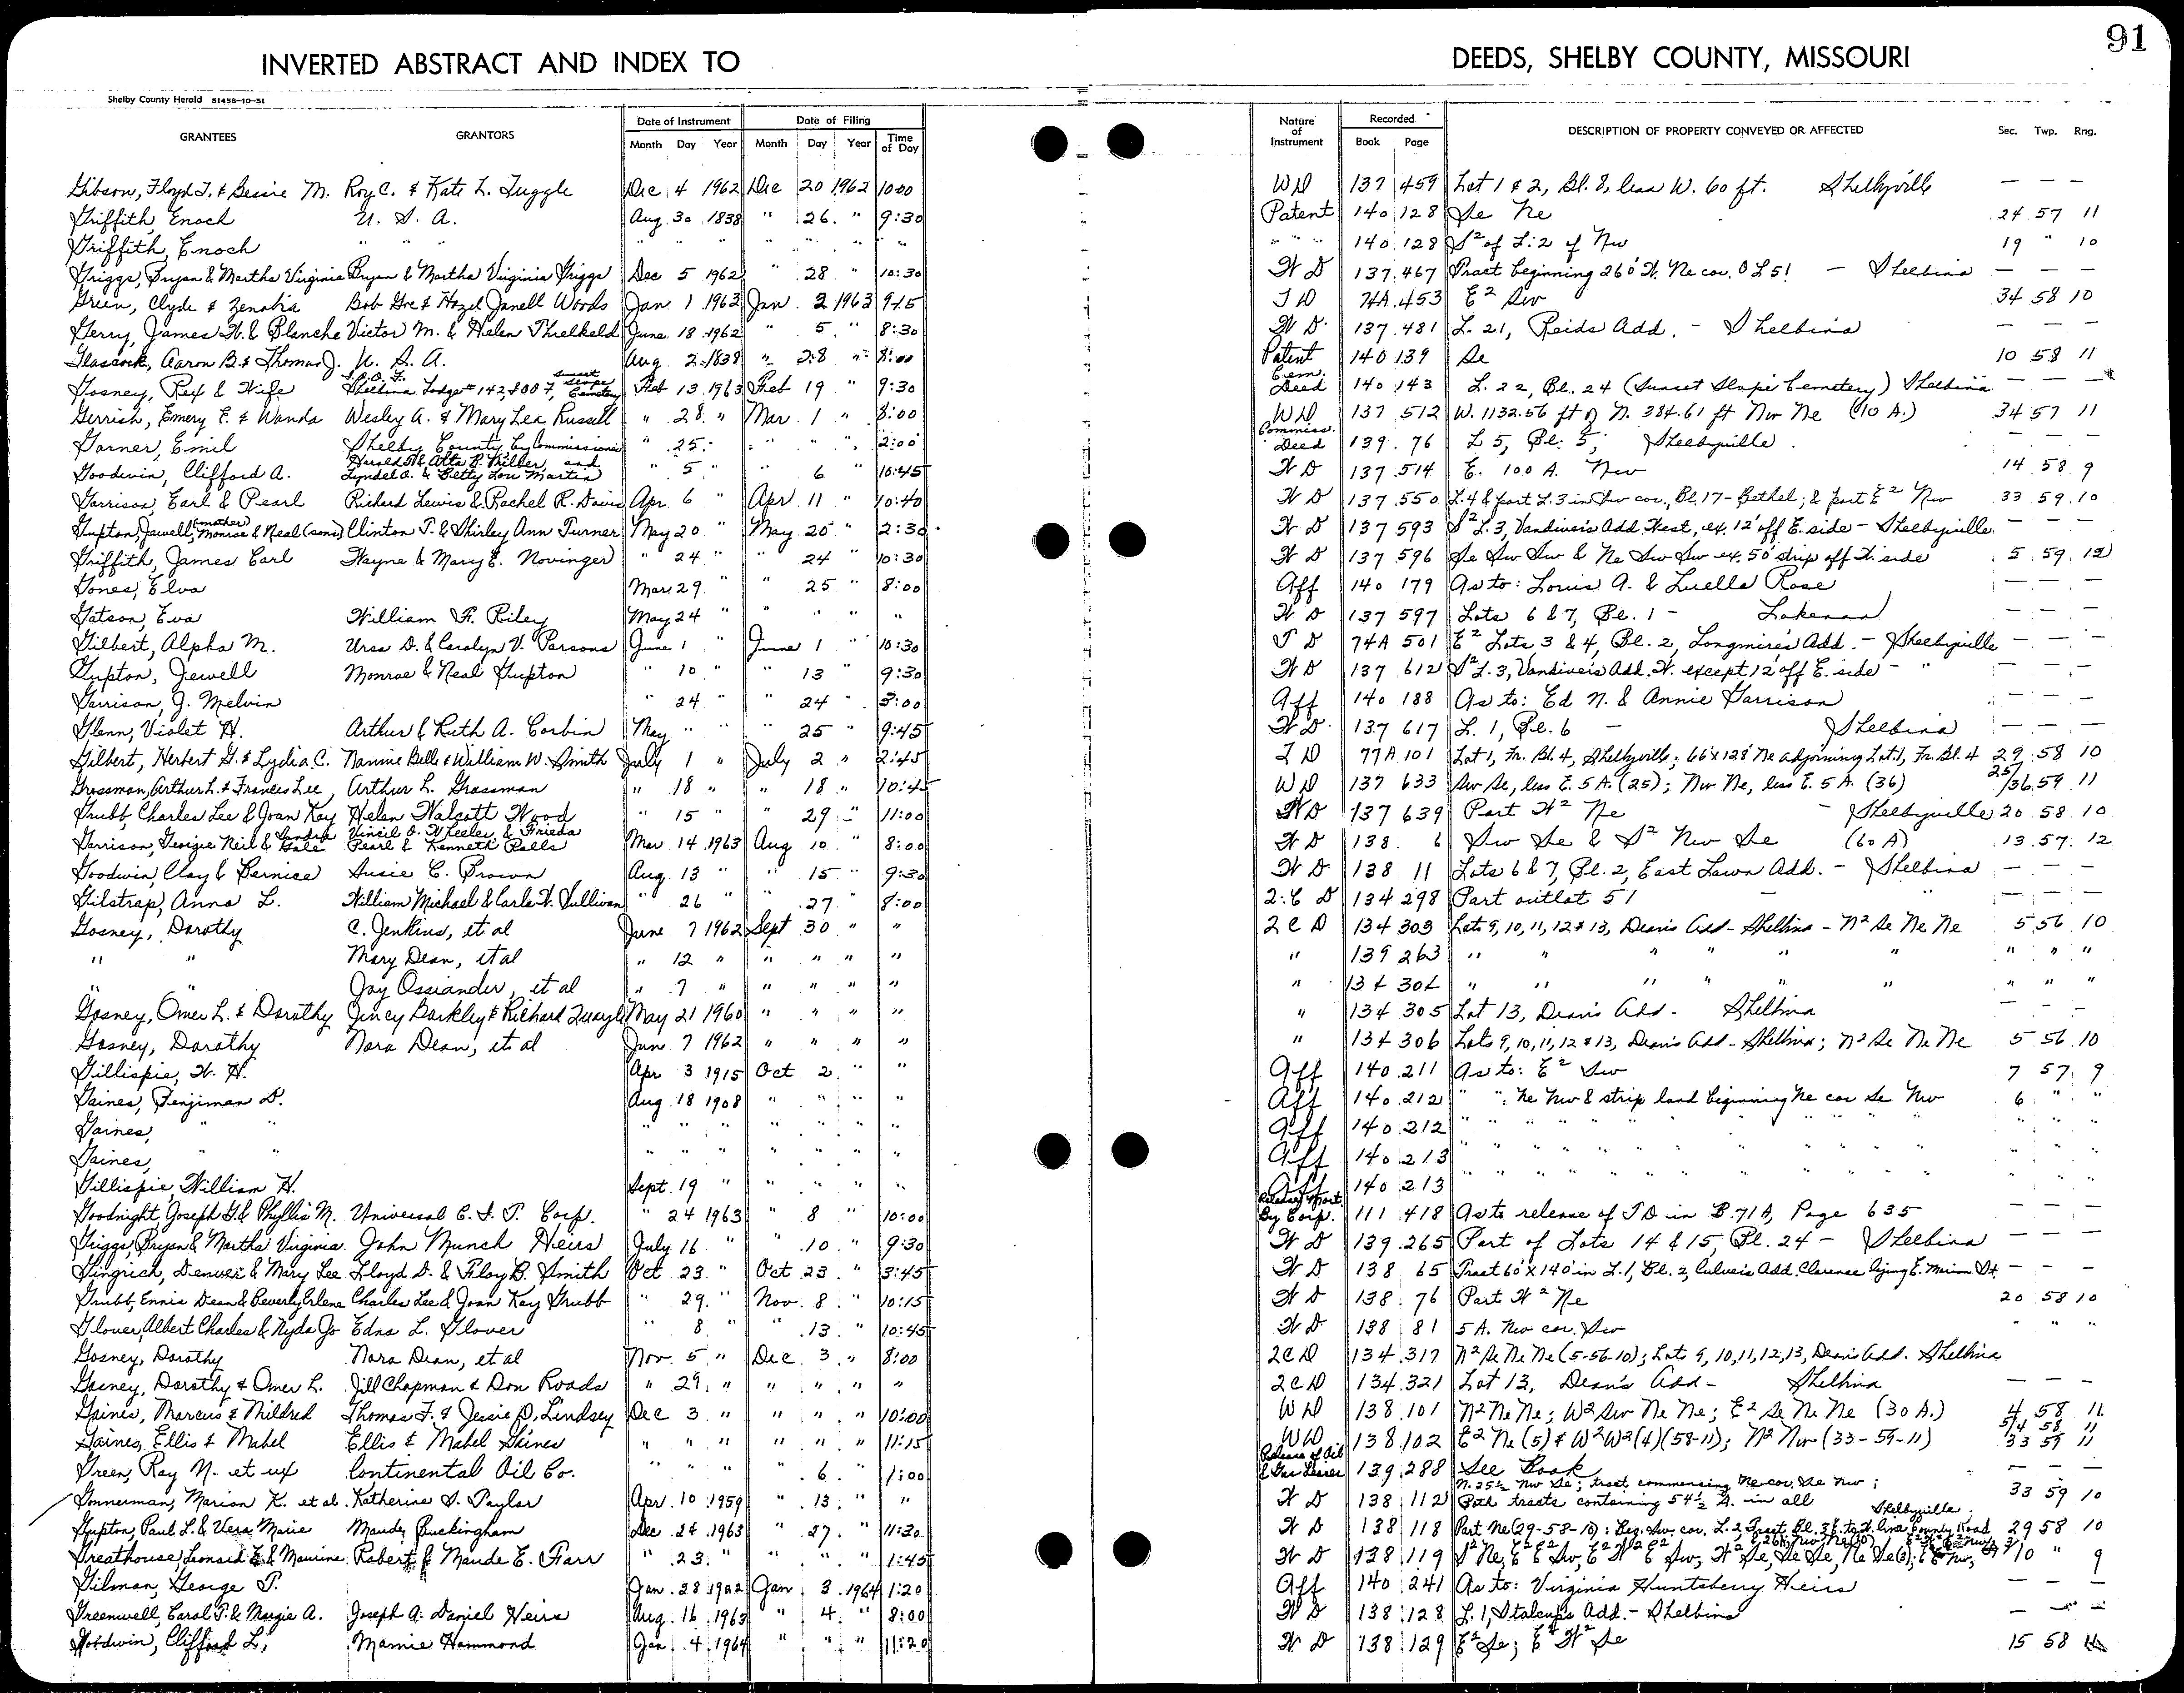 91
INVERTED ABSTRACT AND INDEX TO DEEDS, SHELBY COUNTY, MISSOURI
Shelby County Herald 51458-10-51
GRANTEES GRANTORS Date of Instrument Date of Filing Nature of Instrument Recorded DESCRIPTION OF PROPERTY CONVEYED OR AFFECTED Sec. Twp. Rng.
Month Day Year Month Day Year Time of Day Book Page
Gibson, Floyd T. & Bessie M. Roy C. & Kate L. Tuggle Dec 4 1962 Dec 20 1962 10:00 WD 137 459 Lot 1 & 2, Bl. 8, less W. 60 ft. Shelbyville — — —
Griffith, Enoch U. S. A. Aug. 30 1838 " 26 " 9:30 Patent 140 128 Se Ne 24 57 11
Griffith, Enoch " " " " " " " " " " " " " 140 128 S² of L. 2 of Nw 19 " 10
Griggs, Bryan & Martha Virginia Bryan & Martha Virginia Griggs Dec 5 1962 " 28 " 10:30 W D 137 467 Tract beginning 260' W. Ne cor. O L 51 — Shelbina — — —
Green, Clyde & Zenobia Bob Gre & Hazel Janell Woods Jan 1 1963 Jan. 2 1963 9:15 T D 74A 453 E² Sw 34 58 10
Gerry, James W. & Blanche Victor M. & Helen Threlkeld June 18 1962 " 5 " 8:30 W D 137 481 L. 21, Reids Add. – Shelbina — — —
Glascock, Aaron B. & Thomas J. U. S. A. Aug 2 1838 " 28 " 8:00 Patent 140 139 Se 10 58 11
Gosney, Rex & Wife Shelbina Lodge #142, I.O.O.F., Sunset Slope Cemetery Feb 13 1963 Feb 19 " 9:30 Cem. Deed 140 143 L. 22, Bl. 24 (Sunset Slope Cemetery) Shelbina — — —
Gerrish, Emery E. & Wanda Wesley A. & Mary Lea Russell " 28 " Mar. 1 " 8:00 WD 137 512 W. 1132.56 ft of N. 384.61 ft Nw Ne (10 A.) 34 57 11
Garner, Emil Shelby County by Commissioner " 25 " " " 2:00 Commiss. Deed 139 76 L 5, Bl. 5, Shelbyville — — —
Goodwin, Clifford A. Harold & Alta B. Wilber, and Lyndel A. & Betty Lou Martin " 5 " " 6 10:45 W D 137 514 E. 100 A. Nw 14 58 9
Garrison, Earl & Pearl Richard Lewis & Rachel R. Davis Apr. 6 " Apr 11 " 10:40 W D 137 550 L. 4 & part L. 3 in Sw cor., Bl. 17 – Bethel; & part E² Nw 33 59 10
Gupton, Jewell (mother), Monroe & Neal (sons) Clinton T. & Shirley Ann Turner May 20 " May 20 " 2:30 W D 137 593 S² L. 3, Vandiver's Add. West, ex. 12' off E. side – Shelbyville — — —
Griffith, James Carl Wayne & Mary E. Novinger " 24 " " 24 " 10:30 W D 137 596 Se Sw Sw & Ne Sw Sw ex. 50' strip off W. side 5 59 12
Gones, Elva Mar. 29 " " 25 " 8:00 Aff 140 179 As to: Louis A. & Luella Rose — — —
Gatson, Eva William F. Riley May 24 " " " " " W D 137 597 Lots 6 & 7, Bl. 1 – Lakenan — — —
Gilbert, Alpha M. Ursa D. & Carolyn V. Parsons June 1 " June 1 " 10:30 T D 74A 501 E² Lots 3 & 4, Bl. 2, Longmire's Add. – Shelbyville — — —
Gupton, Jewell Monroe & Neal Gupton " 10 " " 13 " 9:30 W D 137 612 S² L. 3, Vandiver's Add. W. except 12' off E. side – " — — —
Garrison, J. Melvin " 24 " 24 " 3:00 Aff 140 188 As to: Ed N. & Annie Garrison — — —
Glenn, Violet H. Arthur & Ruth A. Corbin May " " " 25 " 9:45 W D 137 617 L. 1, Bl. 6 – Shelbina — — —
Gilbert, Herbert G. & Lydia C. Nannie Belle & William W. Smith July 1 " July 2 " 2:45 T D 77A 101 Lot 1, Fr. Bl. 4, Shelbyville; 66' x 128' Ne adjoining Lot 1, Fr. Bl. 4 29 58 10
Grossman, Arthur L. & Frances Lee, Arthur L. Grossman " 18 " " 18 " 10:45 WD 137 633 Sw Se, less E. 5 A. (25); Nw Ne, less E. 5 A. (36) 25/36 59 11
Grubb, Charles Lee & Joan Kay Helen Walcott Wood " 15 " " 29 " 11:00 WD 137 639 Part W² Ne – Shelbyville 20 58 10
Garrison, Georgie Neil & Sandra Gale Vinsil O. Wheeler, & Frieda Pearl & Kenneth Ralls Mar. 14 1963 Aug 10 " 8:00 W D 138 6 Sw Se & S² Nw Se (60 A) 13 57 12
Goodwin, Clay & Bernice Susie C. Brown Aug. 13 " " 15 " 9:30 W D 138 11 Lots 6 & 7, Bl. 2, East Lawn Add. – Shelbina — — —
Gilstrap, Anna L. William Michael & Carla W. Sullivan " 26 " 27 " 8:00 2:C D 134 298 Part outlot 51 – " — — —
Gosney, Dorothy C. Jenkins, et al June 7 1962 Sept 30 " " 2 C D 134 303 Lots 9, 10, 11, 12 & 13, Dean's Add – Shelbina – N² Se Ne Ne 5 56 10
" " Mary Dean, et al " 12 " " " " " " 139 263 " " " " " " " " "
" " Jay Ossiander, et al " 7 " " " " " " 134 304 " " " " " " " " "
Gosney, Omer L. & Dorothy Quincy Barkley & Richard Quayle May 21 1960 " " " " " 134 305 Lot 13, Dean's Add – Shelbina — — —
Gosney, Dorothy Nora Dean, et al June 7 1962 " " " " " 134 306 Lots 9, 10, 11, 12 & 13, Dean's Add – Shelbina; N² Se Ne Ne 5 56 10
Gillispie, W. H. Apr 3 1915 Oct. 2 " " Aff 140 211 As to: E² Sw 7 57 9
Gaines, Benjiman D. Aug 18 1908 " " " " Aff 140 212 " ": Ne Nw & strip land beginning Ne cor Se Nw 6 " "
Gaines, " " " " " " " " " Aff 140 212 " " " " " " " " " " " "
Gaines, " " " " " " " " " Aff 140 213 " " " " " " " " " " " "
Gillispie, William H. Sept. 19 " " " " " Aff 140 213 " " " " " " " " " " " "
Goodnight, Joseph G. & Phyllis M. Universal C. I. T. Corp. " 24 1963 " 8 " 10:00 Release of Mort. By Corp. 111 418 As to release of T D in B. 71 A, Page 635 — — —
Griggs, Bryan & Martha Virginia John Munch Heirs July 16 " " 10 " 9:30 W D 139 265 Part of Lots 14 & 15, Bl. 24 – Shelbina — — —
Gingrich, Denver & Mary Lee Lloyd D. & Floy B. Smith Oct. 23 " Oct 23 " 3:45 W D 138 65 Tract 60' x 140' in L. 1, Bl. 2, Culver's Add. Clarence lying E. Marion St. — — —
Grubb, Ennis Dean & Beverly Arlene Charles Lee & Joan Kay Grubb " 29 " Nov. 8 " 10:15 W D 138 76 Part W² Ne 20 58 10
Glover, Albert Charles & Nyda Jo Edna L. Glover " 8 " " 13 " 10:45 W D 138 81 5 A. Nw cor. Sw " " "
Gosney, Dorothy Nora Dean, et al Nov. 5 " Dec. 3 " 8:00 2C D 134 317 N² Se Ne Ne (5-56-10); Lots 9, 10, 11, 12, 13, Dean's Add. Shelbina
Gosney, Dorothy & Omer L. Jill Chapman & Don Roads " 29 " " " " " 2C D 134 321 Lot 13, Dean's Add – Shelbina — — —
Gaines, Marcus & Mildred Thomas F. & Jessie D. Lindsey Dec 3 " " " " 10:00 WD 138 101 N² Ne Ne; W² Sw Ne Ne; E² Se Ne Ne (30 A.) 4 58 11
Gaines, Ellis & Mabel Ellis & Mabel Gaines " " " " " " 11:15 WD 138 102 E² Ne (5) & W² W² (4) (58-11); N² Nw (33-59-11) 5/4 58 11 33 59 11
Green, Ray N. et ux Continental Oil Co. " " " " 6 " 1:00 Release of Oil & Gas Lease 139 288 See Book — — —
Gonnerman, Marion K. et al. Katherine S. Taylor Apr. 10 1959 " 13 " " W D 138 112 N. 25½ Nw Se; tract commencing Ne cor. Se Nw; Both tracts containing 54½ A. in all 33 59 10
Gupton, Paul L. & Vera Marie Maude Buckingham Dec. 24 1963 " 27 " 11:20 W D 138 118 Part Ne (29-58-10): Beg. Sw. cor. L. 2, County Road Shelbyville 29 58 10
Greathouse, Leonard E. & Maurine Robert & Maude E. Farr " 23 " " " " 1:45 W D 138 119 S² Ne, 10 " 9
Gilman, George T. Jan. 28 1922 Jan 3 1964 1:20 Aff 140 241 As to: Virginia Huntsberry Heirs — — —
Greenwell, Carol T. & Margie A. Joseph A. Daniel Heirs Aug. 16 1963 " 4 " 8:00 W D 138 128 L. 1, Stalcup's Add. – Shelbina — — —
Goodwin, Clifford L. Mamie Hammond Jan 4 1964 " " " 11:20 W D 138 129 E² Se; E² W² Se 15 58